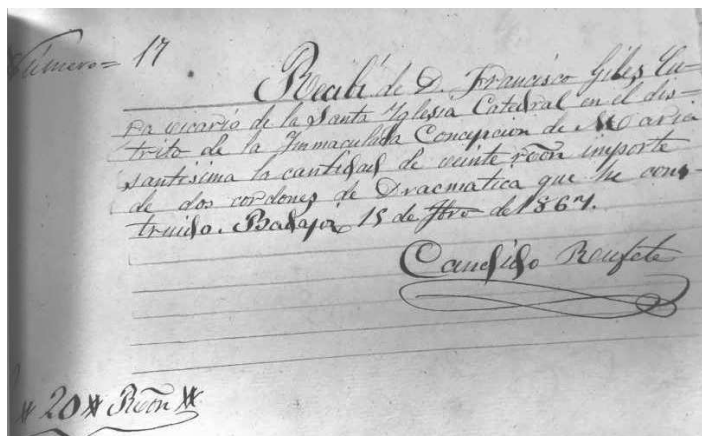 Número = 17
Recibí de D. Francisco Giles Cu-
ra vicario de la Santa Yglesia Catedral en el dis-
trito de la Immaculada Concepcion de Maria
santisima la cantidad de veinte rŝon importe
de dos cordones de Dracmatica que he cons-
truido. Badajoz 15 de de 1867.
Candido Reufete
# 20 # Rŝon #